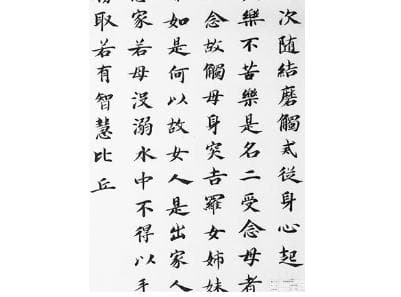 次隨結磨觸戒從身心起
樂不苦樂是名二受念母者
念故觸母身突吉羅女姊妹
如是何以故女人是出家人
家若母没溺水中不得以手
取若有智慧比丘